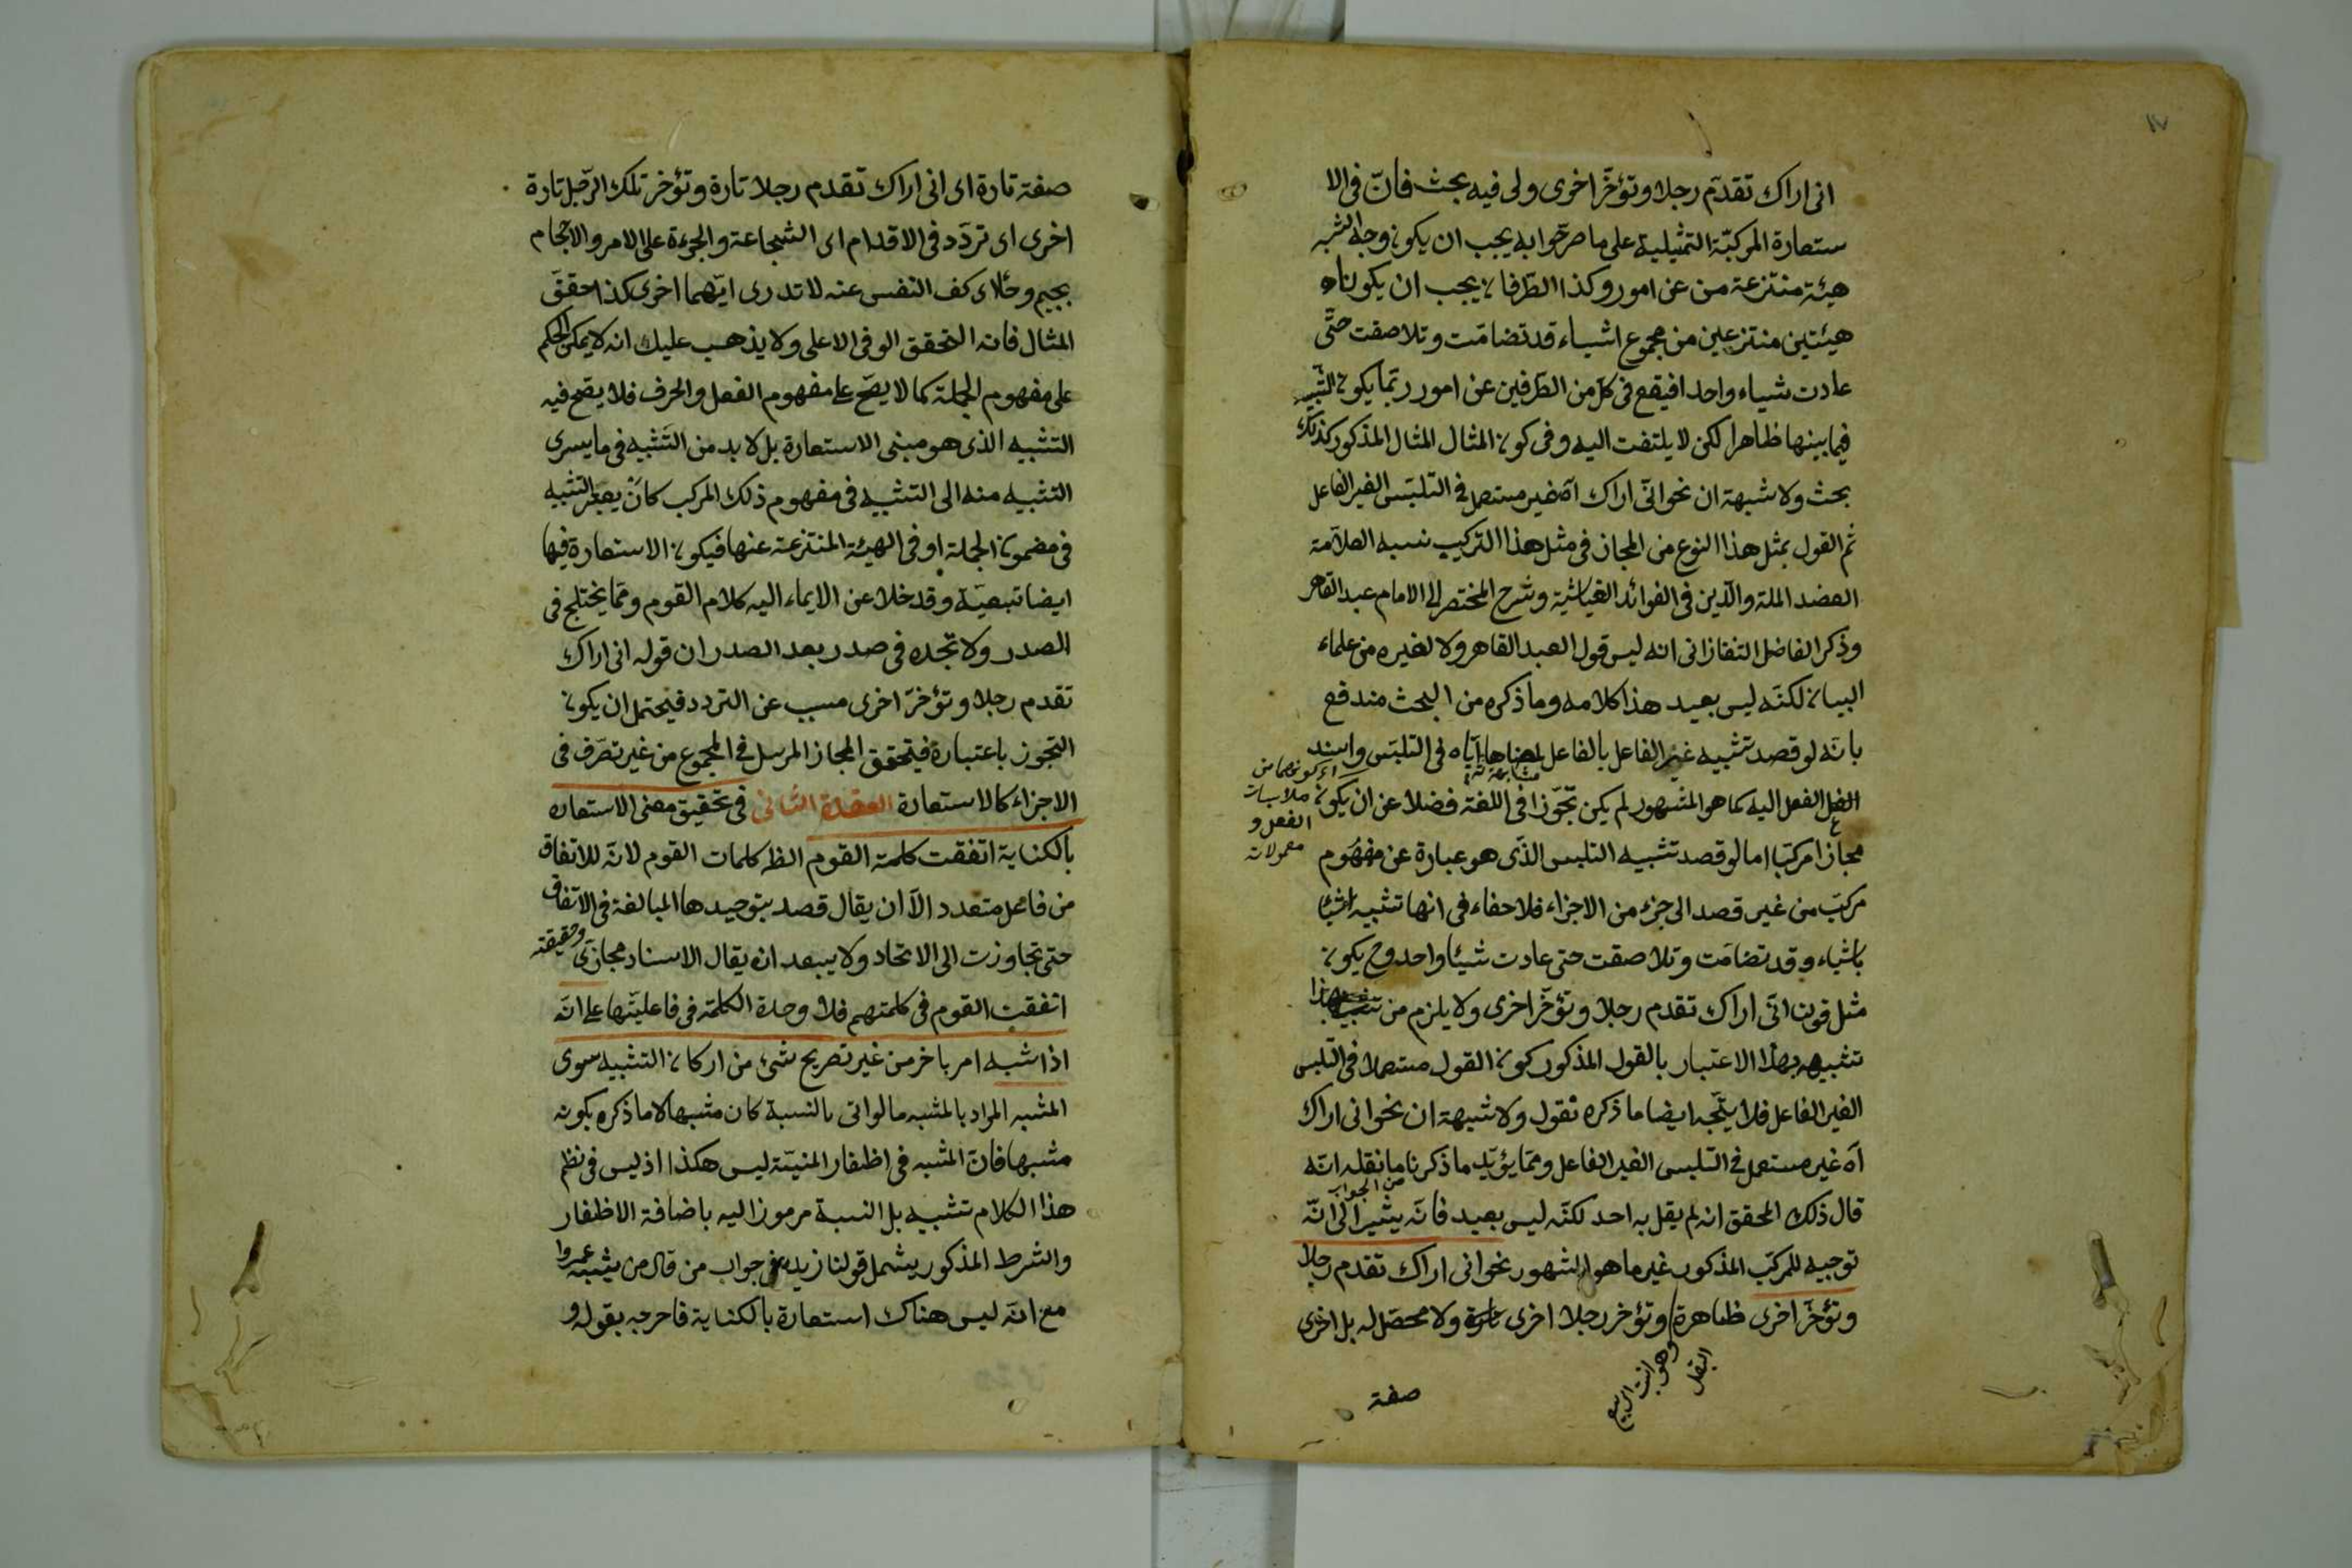 انى اراك تقدّم رجلا وتؤخّر اخرى ولى فيه بحث فانّ فى الا
ستعارة المركبّة التمثيلية على ما صرّحوا به يجب ان يكون وجه الشبه
هيئة منتزعة من عن امور وكذا الطّرفان يجب ان يكونا
هيئتين منتزعين من مجموع اشياء قد تضامّت وتلاصقت حتّى
عادت شياء واحدا فيقع فى كلّ من الطّرفين عن امور ربّما يكون التّشبيه
فيما بينها ظاهرا لكن لا يلتفت اليه وفى كون المثال المثال المذكور كذلك
بحث ولا شبهة ان نحو انّى اراك آه غير مستعمل فى التلبّس الغير الفاعل
ثم القول بمثل هذا النوع من المجاز فى مثل هذا التركيب نسبه العلاّمة
العضد الملة والدّين فى الفوائد الغياثية وشرح المختصر الى الامام عبد القاهر
وذكر الفاضل التفتازانى انه ليس قول العبد القاهر ولا لغيره من علماء
البيان لكنّه ليس بعيد هذا كلامه وما ذكره من البحث مندفع
بانّه لو قصد تشبيه غير الفاعل بالفاعل ايّاه فى التلبّس واسند
الفعل اليه كما هو المشهور لم يكن تجّوزا فى اللغة فضلا عن ان يكون
اى كونهما من
ملابسات
الفعل و
معمولاته
مجازا مركبّا اما لو قصد تشبيه التلبس الذّى هو عبارة عن مفهوم
مركبّ من غير قصد الى جزء من الاجزاء فلا خفاء فى انها تشبيه اشيا
باشياء وقد تضامّت وتلاصقت حتى عادت شيئا واحد وح يكون
مثل قولنا انّى اراك تقدم رجلا وتؤخّر اخرى ولا يلزم من
تشبيهه بهذا الاعتبار بالقول المذكور كون القول مستعملا فى التّلبس
الغير الفاعل فلا يتّجه ايضا ما ذكره نقول ولا شبهة ان نحو انى اراك
آه غير مستعمل فى التّلبس الغير الفاعل وممّا يؤيّد ما ذكرنا ما نقله انّه
من الجواب
قال ذلك المحقق انه لم يقل به احد لكنّه ليس بعيد فانّه يشير الى انّه
توجيه للمركبّ المذكور غير ما هو المشهور نحو انى اراك تقدم رجلا
وتؤخّر اخرى ظاهرة وتؤخر رجلا اخرى ولا محصّل له بل اخرى
وهو انبت الربيع
البقل
صفة
صفة تارة اى انى اراك تقدم رجلا تارة وتؤخر تلك الرّجل تارة
اخرى اى تردّد فى الاقدام اى الشجاعة والجرءة على الامر والاحجام
بجيم وحاء كف النفس عنه لا تدرى ايّهما اخرى كذا حققّ
المثال فانه التحقق الوفى الاعلى ولا يذهب عليك انه لا يمكن الحكم
على مفهوم الجملة كما لا يصّح على مفهوم الفعل والحرف فلا يصّح فيه
التشبيه الذى هو مبنى الاستعارة بل لا بد من التّشبيه فى ما يسرى
التشبيه منه الى التشبيه فى مفهوم ذلك المركب كان يعتبر التشبيه
فى مضمون الجملة او فى الهيئة المنتزعة عنها فيكون الاستعارة فيها
ايضا تبعيّة وقد خلا عن الايماء اليه كلام القوم وممّا يختلج فى
الصدر ولا تجده فى صدر بعد الصدر ان قوله انى اراك
تقدم رجلا وتؤخرّ اخرى مسبب عن التردد فيحتمل ان يكون
التجوز باعتباره فيتحقق المجاز المرسل فى المجموع من غير تصرّف فى
الاجزاء كالاستعارة العقدة الثانى فى تحقيق معنى الاستعاره
بالكناية اتفقت كلمة القوم الظ كلمات القوم لانّه للاتفاق
من فاعل متعدد الاّ ان يقال قصد بتوحيدها المبالغة فى الاتفاق
حتى تجاوزت الى الاتحاد ولا يبعد ان يقال الاسناد مجازىّ وحقيقته
اتفقت القوم فى كلمتهم فلا وحدة الكلمة فى فاعليّتها على انّه
اذا شبه امر باخر من غير تصريح شئ من اركان التشبيه سوى
المشبه المراد بالمشبه ما لو اتى بالنسبة كان مشبها لا ما ذكره بكونه
مشبها فانّ المشبه فى اظفار المنيّة ليس هكذا اذ ليس فى نظم
هذا الكلام تشبيه بل النسبة مرموز اليه باضافة الاظفار
والشرط المذكور يشمل قولنا زيد فى جواب من قال من يشبه عمروا
مع انّه ليس هناك استعارة بالكناية فاخرجه بقوله و